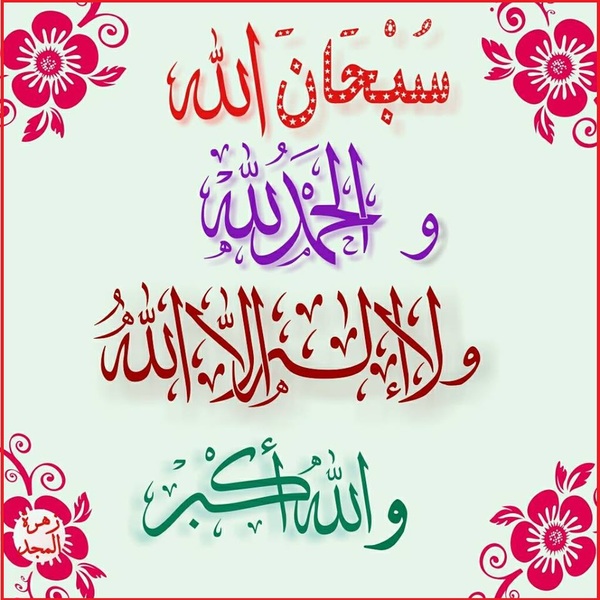 سُبْحَانَ الله
و الحَمْدُ لله
ولا إله إلَّا اللهُ
واللهُ أكبر
زهرة
المجد